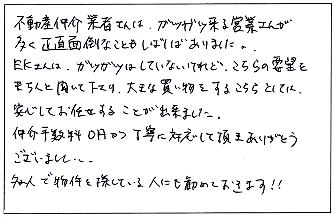 不動産仲介業者さんは、ガツガツ来る営業さんが
多く正直面倒なこともしばしばありました。
EEさんは、ガツガツはしていないけれど、こちらの要望を
きちんと聞いて下さり、大きな買い物をするこちらとしては、
安心してお任せすることが出来ました。
仲介手数料0円かつ丁寧に対応して頂きありがとう
ございました。
知人で物件を探している人にも勧めておきます!!